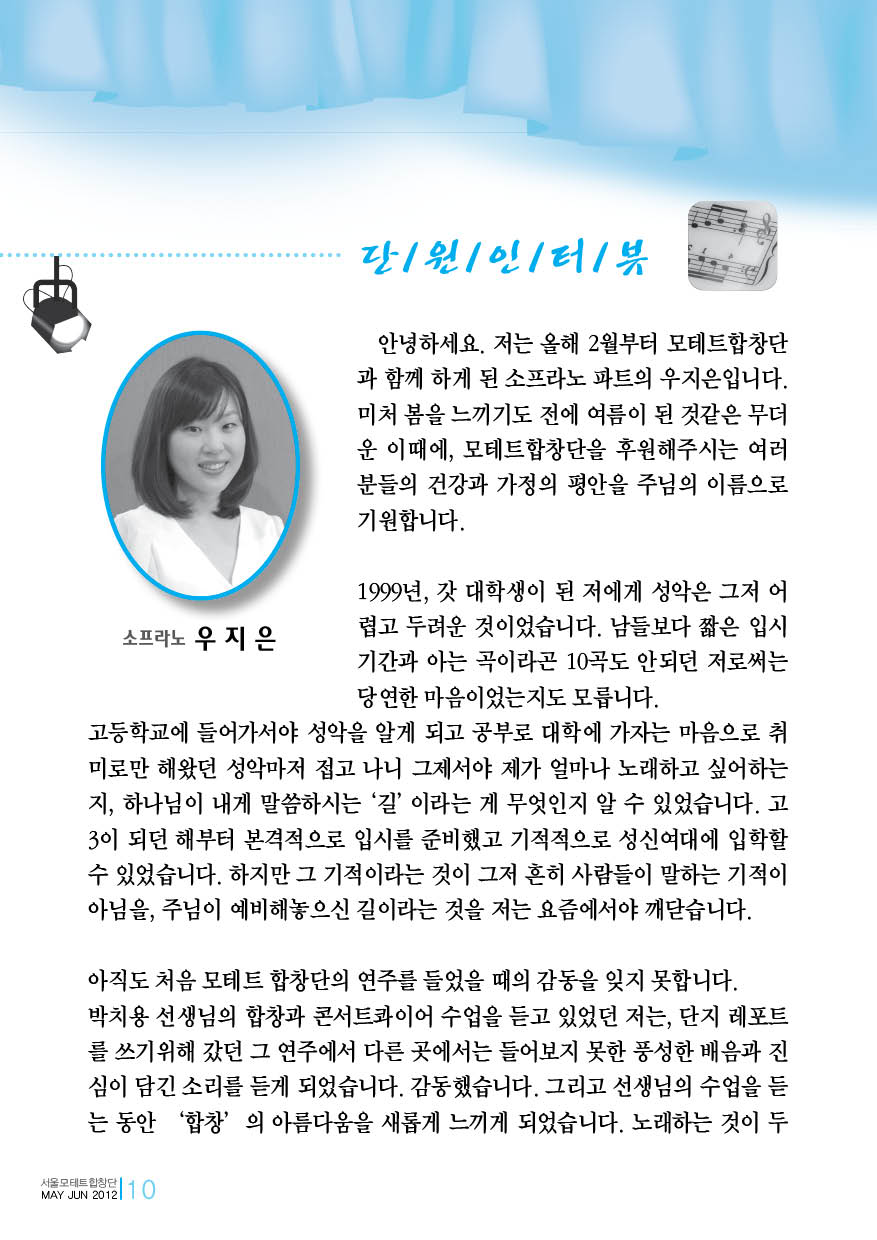 단/원/인/터/뷰
안녕하세요. 저는 올해 2월부터 모테트합창단
과 함께 하게 된 소프라노 파트의 우지은입니다.
미처 봄을 느끼기도 전에 여름이 된 것같은 무더
운 이때에, 모테트합창단을 후원해주시는 여러
분들의 건강과 가정의 평안을 주님의 이름으로
기원합니다.
소프라노 우 지 은
1999년, 갓 대학생이 된 저에게 성악은 그저 어
렵고 두려운 것이었습니다. 남들보다 짧은 입시
기간과 아는 곡이라곤 10곡도 안되던 저로써는
당연한 마음이었는지도 모릅니다.
고등학교에 들어가서야 성악을 알게 되고 공부로 대학에 가자는 마음으로 취
미로만 해왔던 성악마저 접고 나니 그제서야 제가 얼마나 노래하고 싶어하는
지, 하나님이 내게 말씀하시는 ‘길’ 이라는 게 무엇인지 알 수 있었습니다. 고
3이 되던 해부터 본격적으로 입시를 준비했고 기적적으로 성신여대에 입학할
수 있었습니다. 하지만 그 기적이라는 것이 그저 흔히 사람들이 말하는 기적이
아님을, 주님이 예비해놓으신 길이라는 것을 저는 요즘에서야 깨닫습니다.
아직도 처음 모테트 합창단의 연주를 들었을 때의 감동을 잊지 못합니다.
박치용 선생님의 합창과 콘서트콰이어 수업을 듣고 있었던 저는, 단지 레포트
를 쓰기위해 갔던 그 연주에서 다른 곳에서는 들어보지 못한 풍성한 배음과 진
심이 담긴 소리를 듣게 되었습니다. 감동했습니다. 그리고 선생님의 수업을 듣
는 동안 ‘합창’ 의 아름다움을 새롭게 느끼게 되었습니다. 노래하는 것이 두
서울모테트합창단
MAY JUN 2012 10